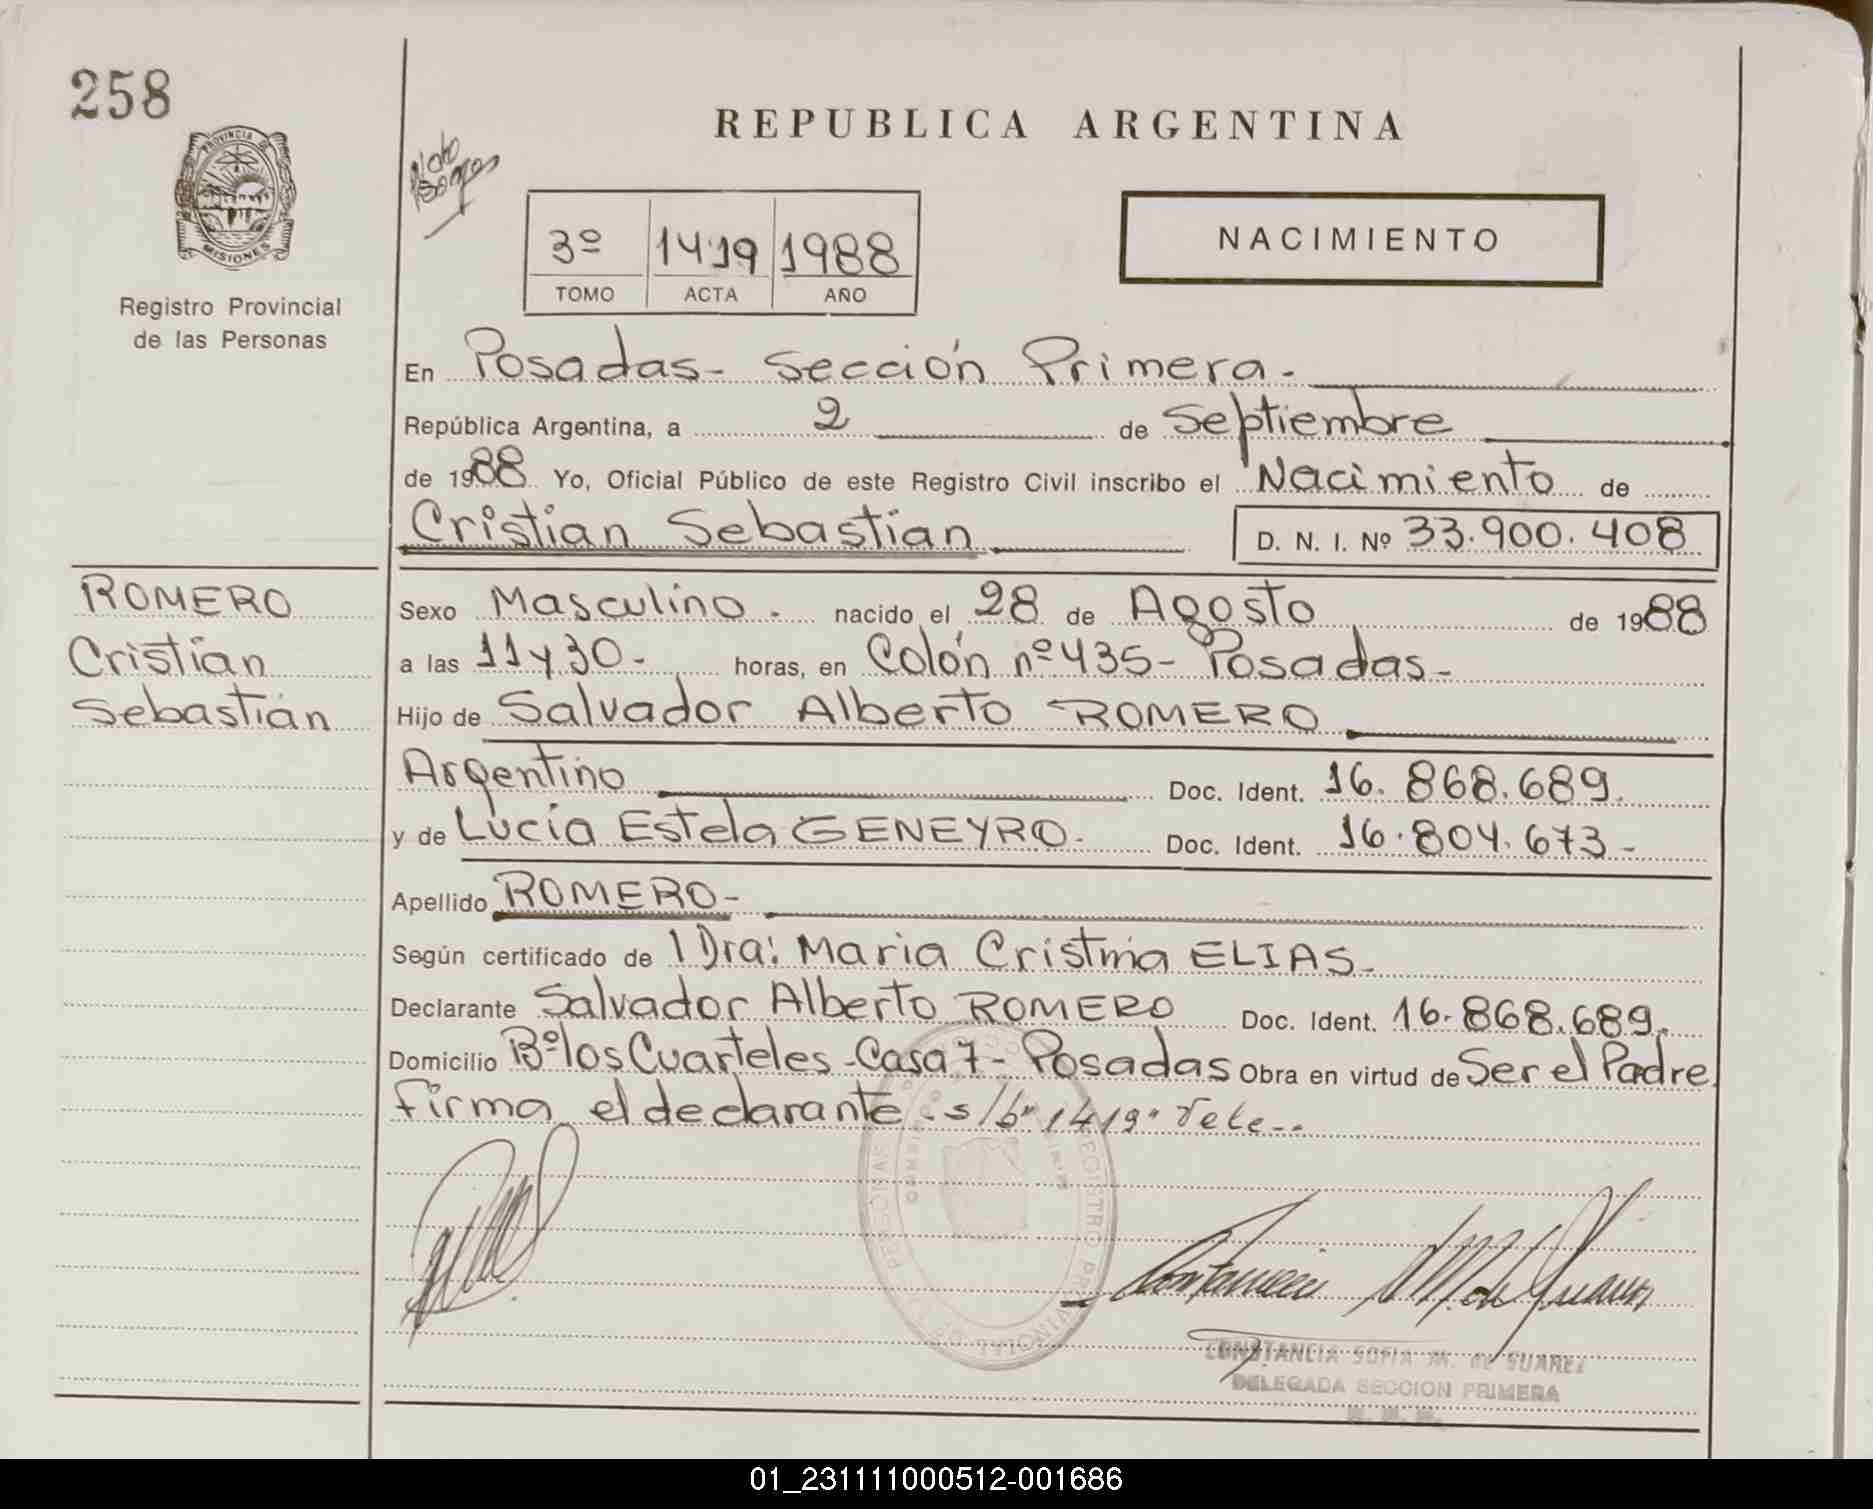 258
PROVINCIA DE
MISIONES
Registro Provincial
de las Personas
REPUBLICA ARGENTINA
3º 1419 1988
TOMO ACTA AÑO
NACIMIENTO
En Posadas - Sección Primera -
República Argentina, a 2 de Septiembre
de 1988 Yo, Oficial Público de este Registro Civil inscribo el Nacimiento de
Cristian Sebastian D. N. I. Nº 33.900.408
ROMERO
Cristian
Sebastián
Sexo Masculino - nacido el 28 de Agosto de 1988
a las 11 y 30 - horas, en Colón nº 435 - Posadas -
Hijo de Salvador Alberto ROMERO
Argentino Doc. Ident. 16.868.689.
y de Lucía Estela GENEYRO - Doc. Ident. 16.804.673 -
Apellido ROMERO -
Según certificado de Dra: Maria Cristina ELIAS -
Declarante Salvador Alberto ROMERO Doc. Ident. 16.868.689.
Domicilio Bº los Cuarteles - Casa 7 - Posadas Obra en virtud de Ser el Padre
firma el declarante - s/b" 1419"
CONSTANCIA SOFIA M. de SUAREZ
DELEGADA SECCION PRIMERA
01_231111000512-001686